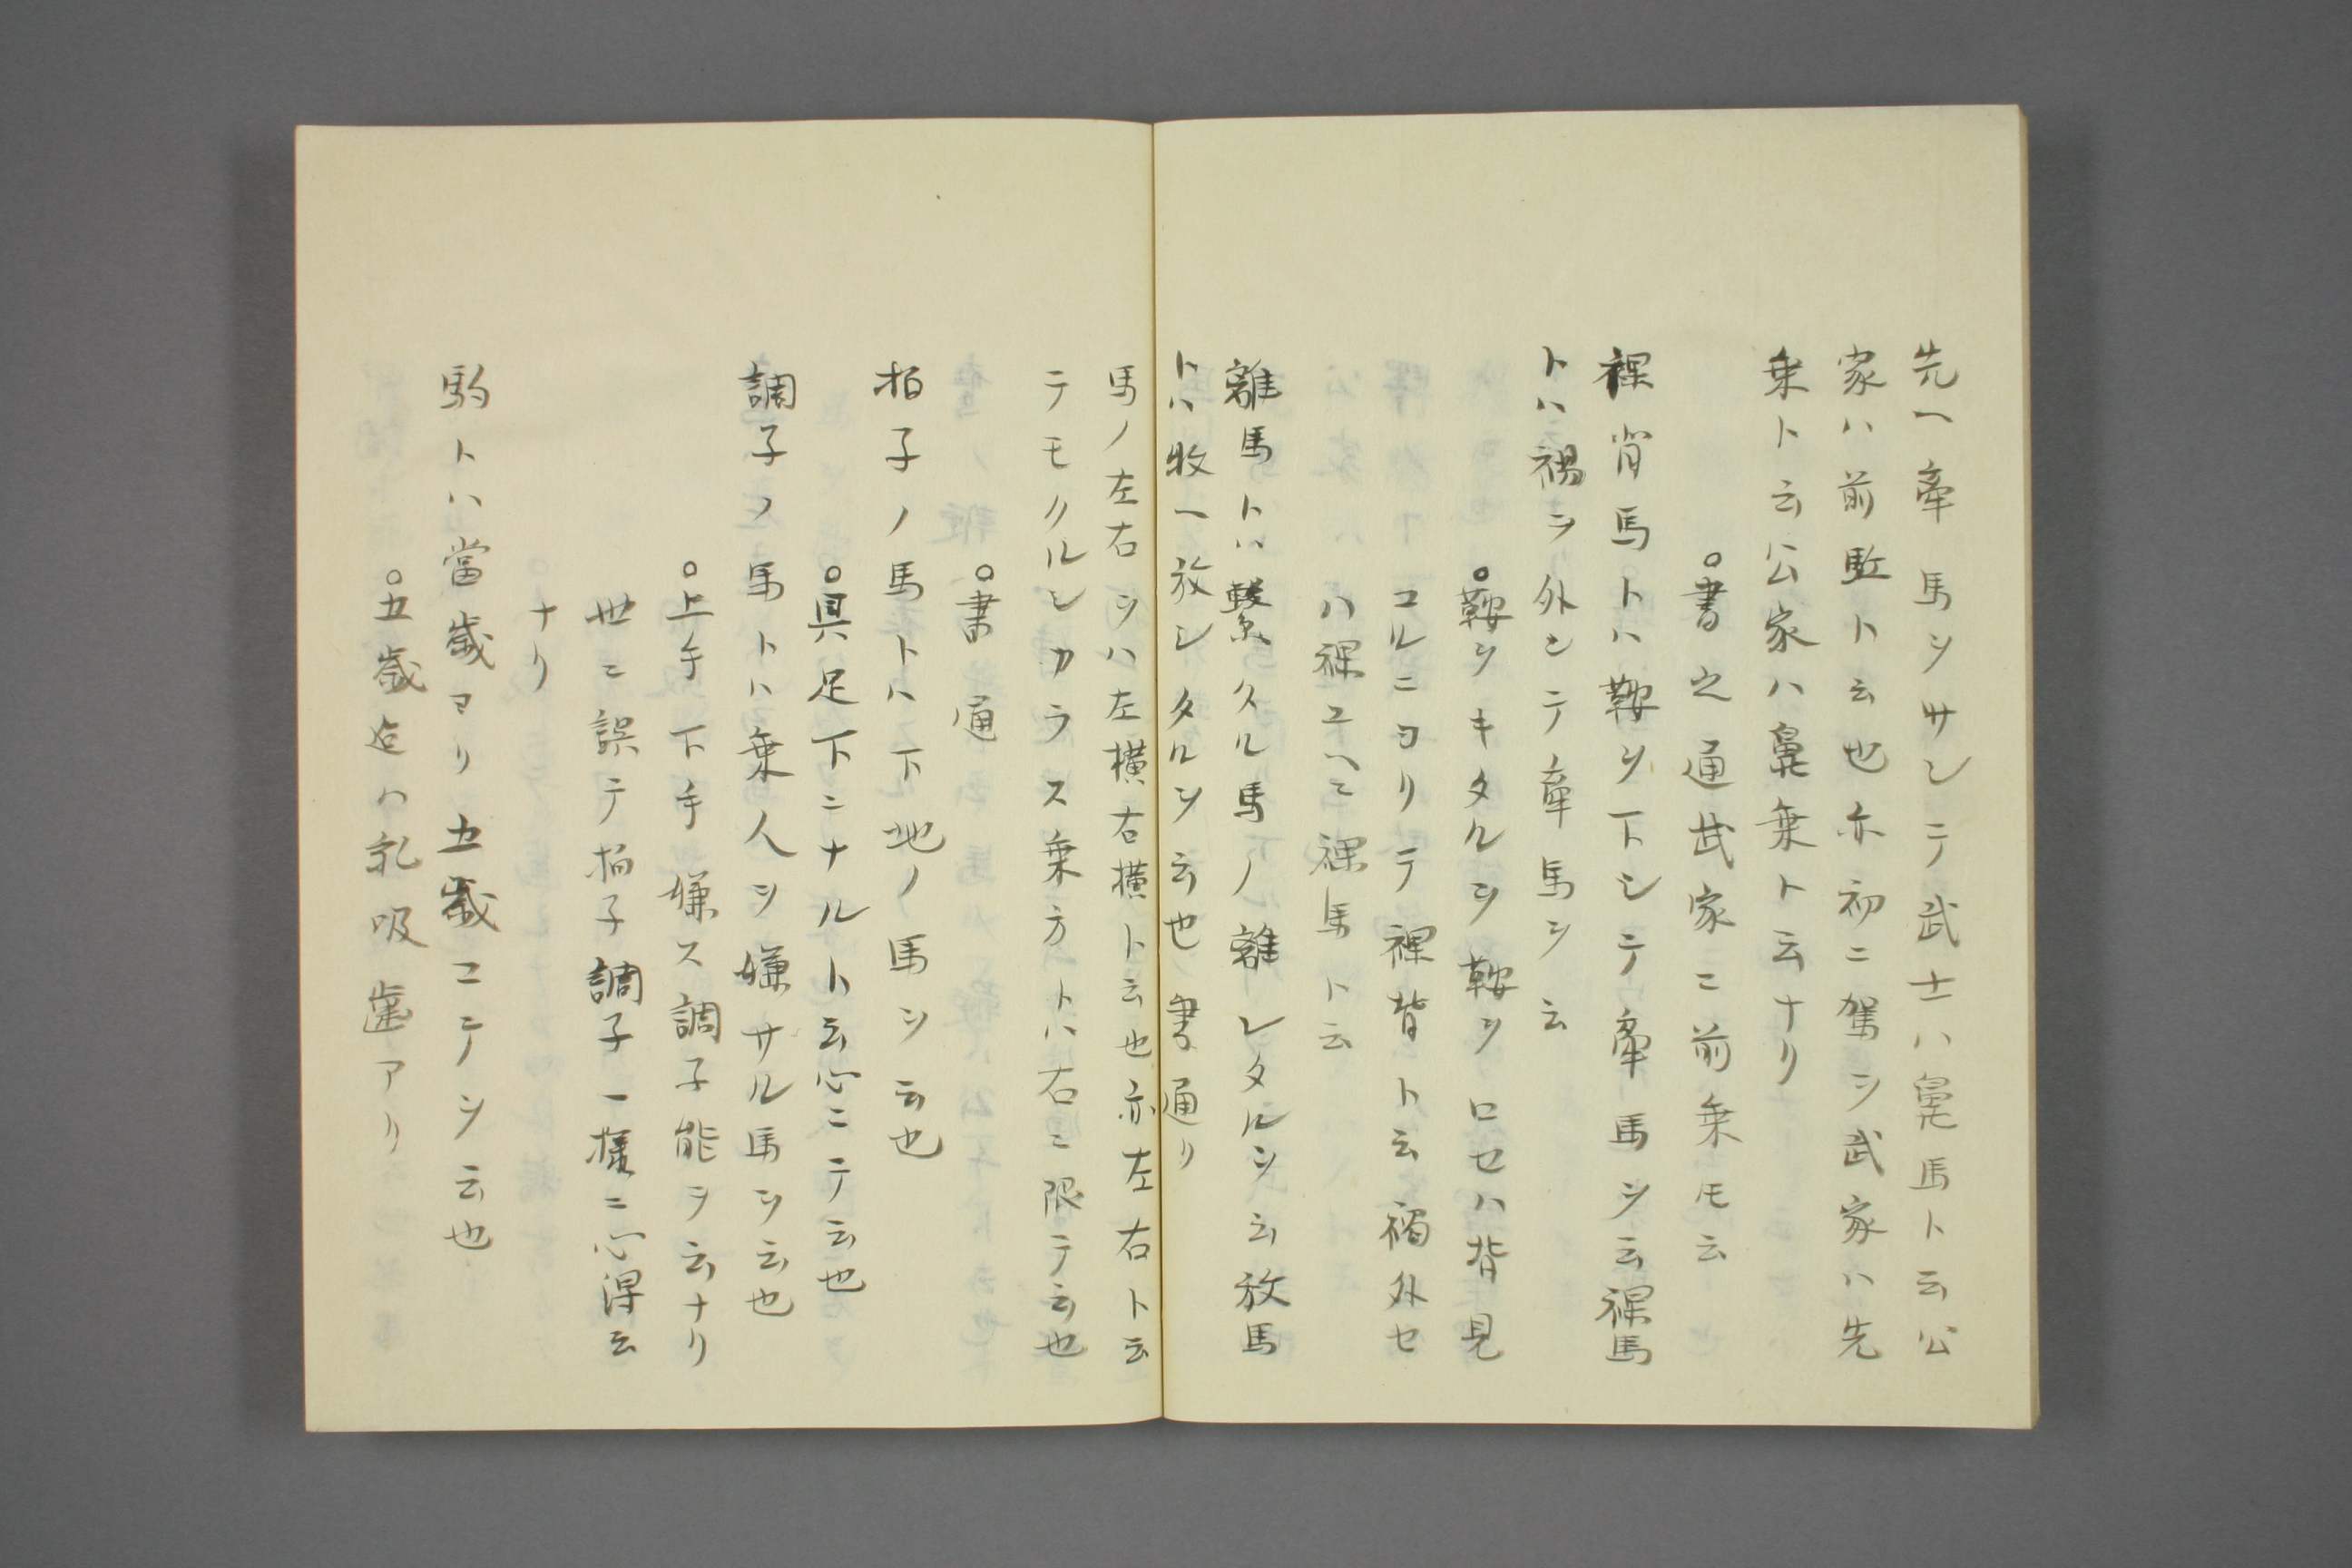 先ヘ牽馬ヲサシテ武士ハ鼻馬ト云公
家ハ前駈ト云也亦初ニ駕シ武家ハ先
乗ト云公家ハ鼻乗ト云ナリ
○書之通武家ニ前乗モ云
裸背馬トハ鞍ヲ下シテ牽馬ヲ云裸馬
トハ裼ヲ外シテ牽馬ヲ云
○鞍ヲキタルヲ鞍ヲロセハ背見
ユルニヨリテ裸背ト云裼外セ
ハ裸ユヘニ裸馬ト云
離馬トハ繋クル馬ノ離レタルヲ云放馬
トハ牧ヘ放シタルヲ云也書通リ
馬ノ左右ヲハ左横右横ト云也亦左右ト云
テモクルシカラス乗方ヿトハ右ニ限テ云也
○書通
拍子ノ馬トハ下地ノ馬ヲ云也
○具足下ニナルト云心ニテ云也
調子ノ馬トハ乗人ヲ嫌サル馬ヲ云也
○上手下手嫌ス調子能ヲ云ナリ
世ニ誤テ拍子調子一様ニ心得云
ナリ
駒トハ當歳ヨリ五歳ニテヲ云也
○五歳迄ハ乳吸歯アリ